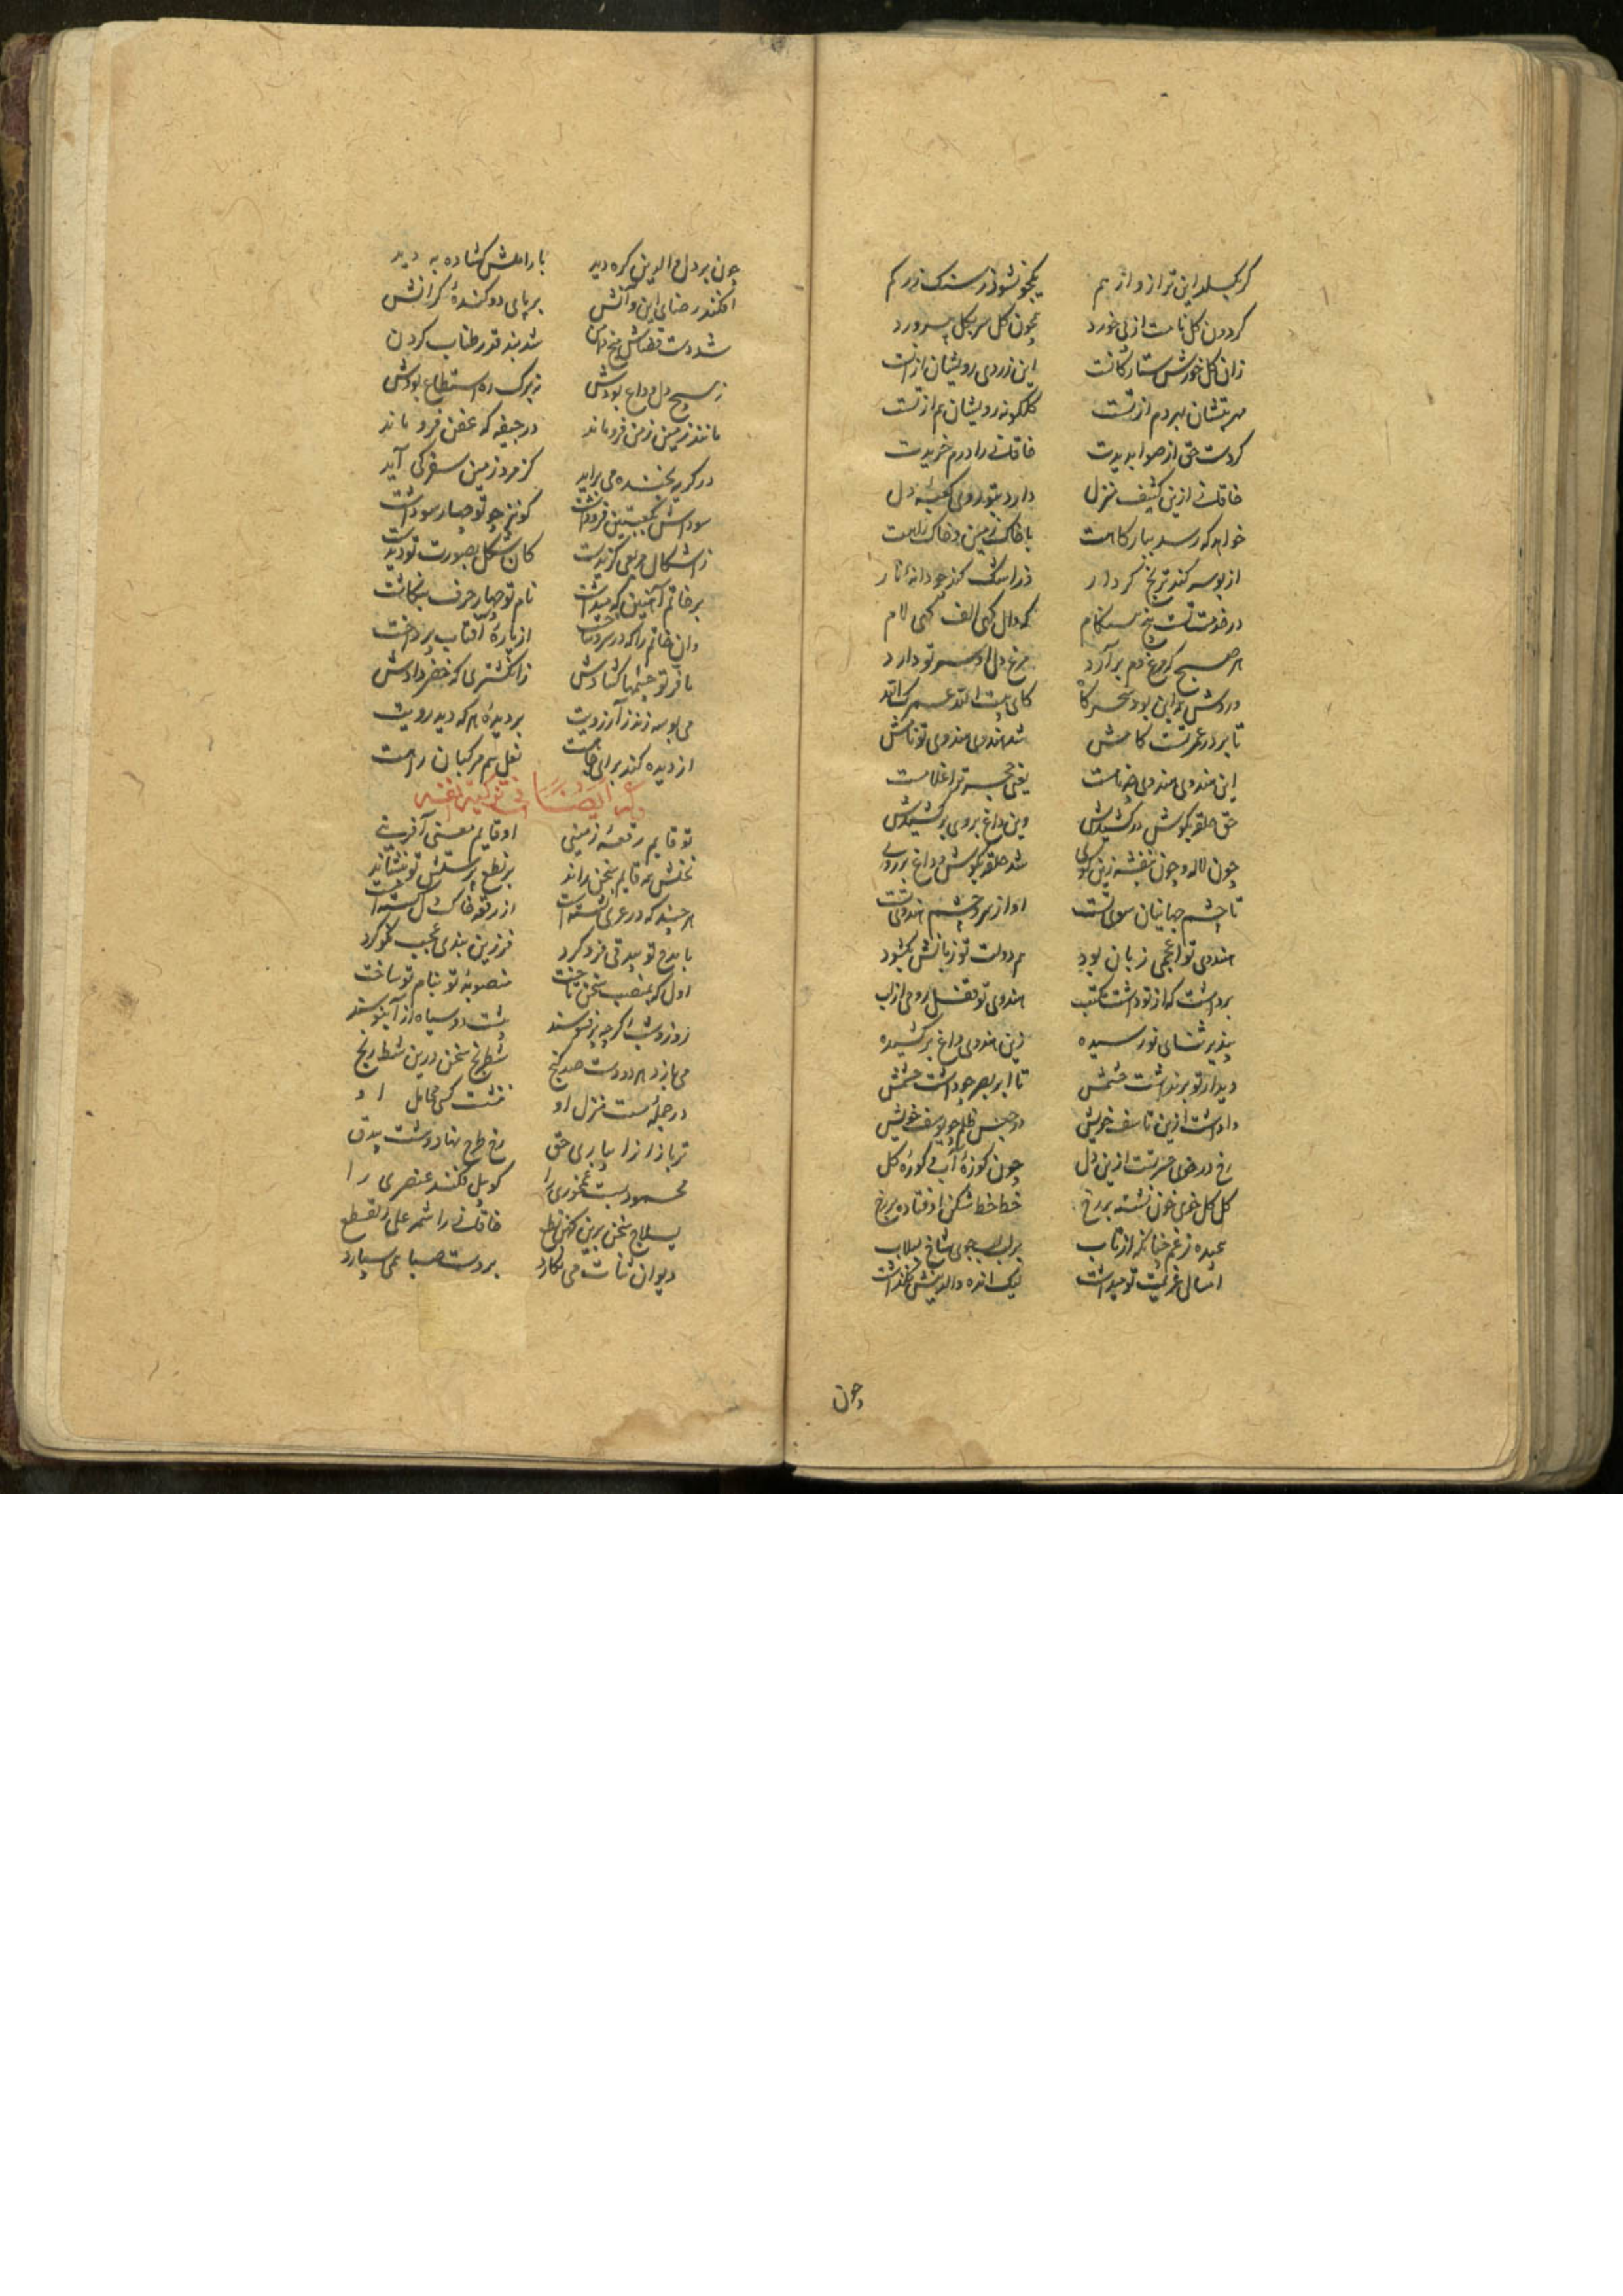 گر بگسلد این ترازو از هم یکجو نشود ز سنک زر کم
کردون کل نامت از پی خورد چون کل سر بکل بپرورد
زان کل خورش ستارکانست این زردی رویشان از آنست
سر بتشان بهر دم از تست کلکونه رویشان هم از تست
کردست حق از صوابدیدت خاقانی را درم خریدت
خاقانی ازین کثیف منزل دارد بتو روی کعبه دل
خواهد که رسد ببارکاهت با خاک زمین و خاک راهت
از بوسه کند ترنج کردار در اشک کند چو دانه نار
در خدمت تست پنج هنکام که دال کهی الف کهی لام
هر صبح که مرغ دم برآرد مرغ دل او سر تو دارد
وردش همه این بود سحرکاه کای هست
تا بر در عمر تست کامش شد هندوی هندوی تو نامش
این هندوی هندوی خدمت یعنی تر غلامت
حق حلقه بکوش در کشیدش وین داغ بروی بر کشیدش
چون لاله و چون بنفشه زین کوی شد حلقه بکوش و داغ بر روی
تا چشم جهانیان سوی تست او از سر و چشم هندوی تست
هندوی تو اعجمی زبان بود هم دولت تو زبانش بکشود
برداشت که از تو داشت هندوی تو قفل رومی از لب
بپذیر ثنای نو رسیده زین هندوی داغ بر کشیده
دیدار تو بر نداشت چشمش تا ابر بصر چو داشت چشمش
داد است ازین تاسف خویش در حبس ظلم چو یوسف خویش
رخ در خوی حسرتست ازین دل چون کوزه آب کوزه کل
کل کل خوی خون نشسته بر رخ خط خط شکن اوفتاده بر رخ
از تاب بر لب جوی شاخ سیلاب
امسال عزیمت تو میداشت لیک انده والدینش نکذاشت
چون
چون بر دل والدین کره دید با رامش کشاده به دید
افکند رضای این و آنش بر پای دو کندهٔ کرانش
شد دست قضاش میخ دامن شد بند قدر طناب کردن
ز بسیج دل وداع بودش ز برک ره استطاع بودش
مانند زمین زمن فرو ماند در جیفه که عفن فرو ماند
در کریه بخنده می براید کز مرد زمین سفر کی آید
سوداش فرو داشت کو نیز چو تو چهار سو داشت
ز اشکال مربعی کزیدست کان شکل بصورت تو دیدست
بر خاتم آهنین که میداشت نام تو چهار حرف بنکاشت
وان خاتم را که در سر دست از پاره آفتاب پرداخت
تا فر تو چشمها کشادش ز انکشتری که خضر دادش
می بوسه زند ز آرزویت بر دیدهٔ هر که دید رویت
از دیده کند برای نعل سم مرکبان راهت
ایضا فی تزکیة نفسه
تو قایم رقعه زمینی او قایم معنی آفرینی
نعتش بتو قایم سخن راند بر نطع پرستش تو بنشاند
هر چند که در عری نشسته است از رقعه خاک دل کسسته است
با مدح تو بیدقی فرو کرد فرزین بندی عجب نکو کرد
اول که بمنصب سخن تاخت منصوبه تو بنام تو ساخت
روز و شب اکرچه پر فسوسند هست دو سپاه از آبنوسند
می بازد هر دو دست صد کنج شطرنج سخن درین شطرنج
در جلهٔ تست منزل او ننشست کسی مقابل او
تر بازار از بیاری حق رخ طرح نهاد و شست بیدق
محمود بست عنصری را کو پیل فکند عنصری را
لیلاج سخن برین کهن نطع خاقانی را شمر علی القطع
دیوان ثنات می نکارد بر دست صبا می سپارد